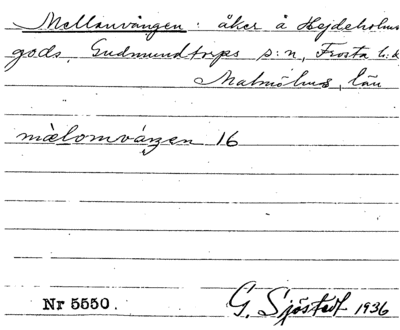 Mellanvången: åker å Hejdeholms
gods, Gudmundtorps s:n, Frosta h:d
Malmöhus län
mælomváŋen 16
Nr 5550.
G. Sjöstedt 1936